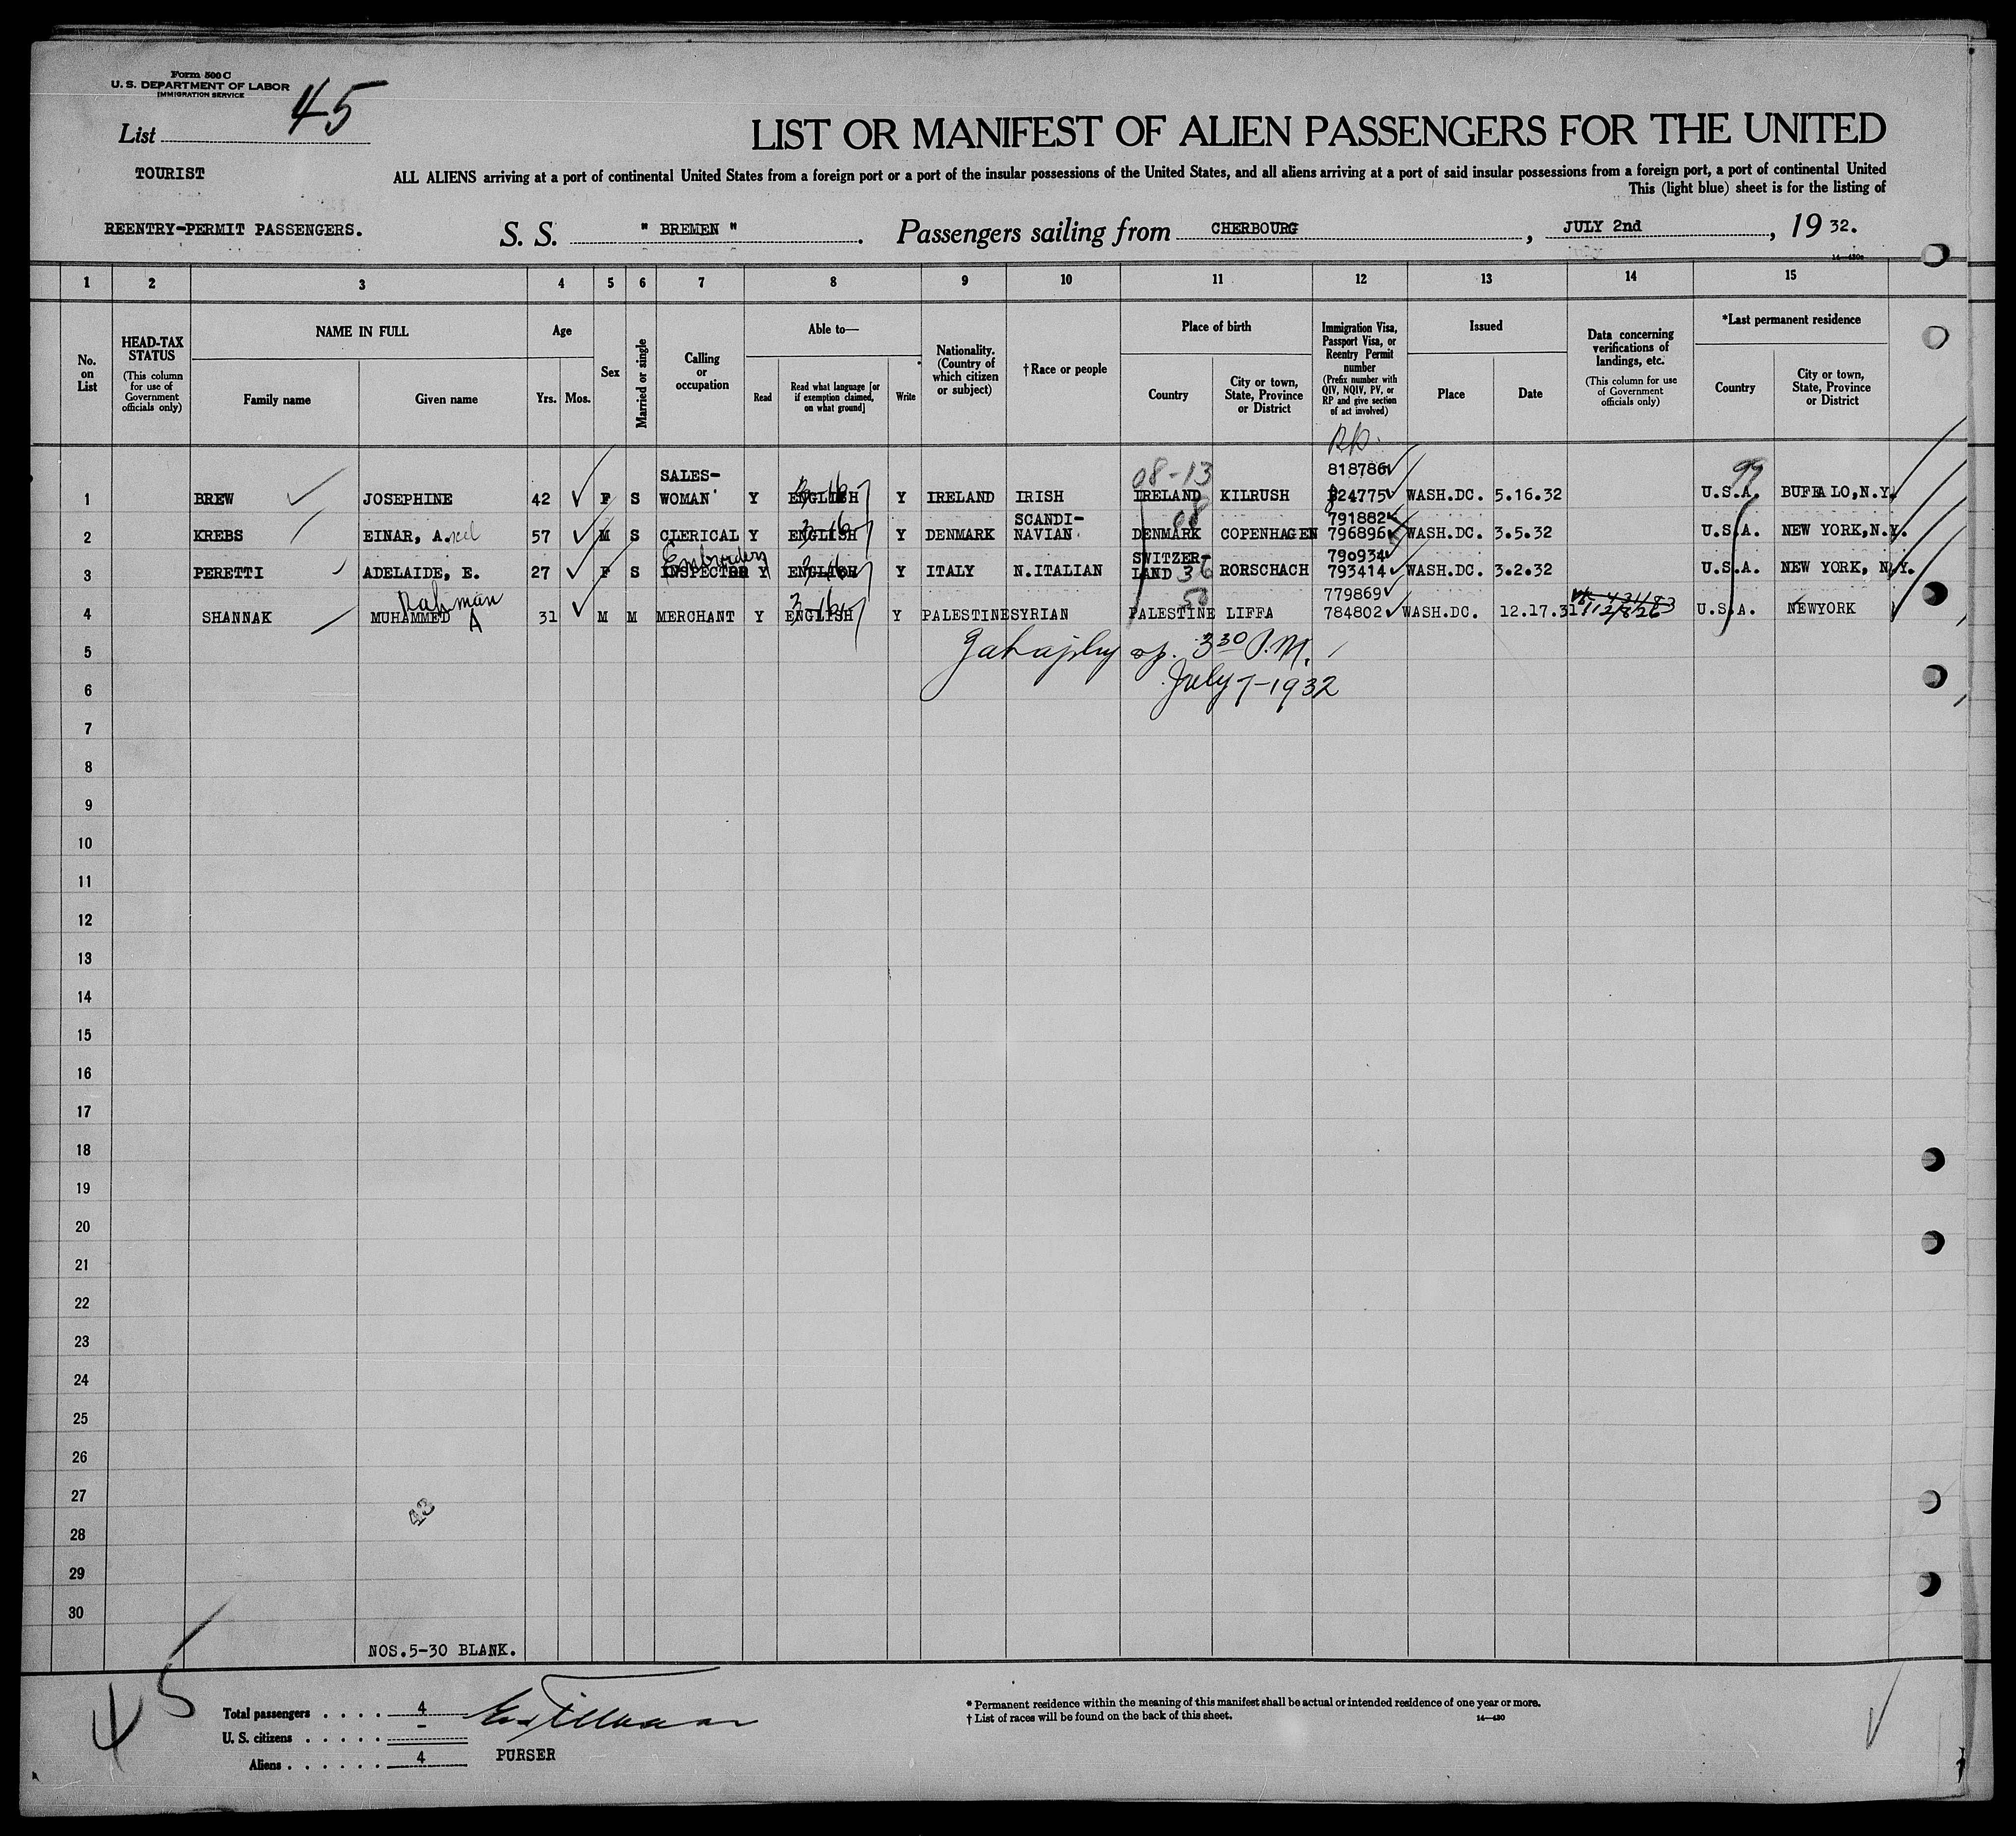 Form 500 C
U. S. DEPARTMENT OF LABOR
IMMIGRATION SERVICE
List 45
LIST OR MANIFEST OF ALIEN PASSENGERS FOR THE UNITED
TOURIST
ALL ALIENS arriving at a port of continental United States from a foreign port or a port of the insular possessions of the United States, and all aliens arriving at a port of said insular possessions from a foreign port, a port of continental United
This (light blue) sheet is for the listing of
REENTRY-PERMIT PASSENGERS.
S. S. " BREMEN ". Passengers sailing from CHERBOURG, JULY 2nd, 19 32.
1 2 3 4 5 6 7 8 9 10 11 12 13 14 15
No. on List
HEAD-TAX STATUS (This column for use of Government officials only)
NAME IN FULL
Family name
Given name
Age
Yrs. Mos.
Sex
Married or single
Calling or occupation
Able to—
Read
Read what language [or if exemption claimed, on what ground]
Write
Nationality. (Country of which citizen or subject)
†Race or people
Place of birth
Country
City or town, State, Province or District
Immigration Visa, Passport Visa, or Reentry Permit number (Prefix number with QIV, NQIV, PV, or RP and give section of act involved)
Issued
Place
Date
Data concerning verifications of landings, etc. (This column for use of Government officials only)
*Last permanent residence
Country
City or town, State, Province or District
08-13 818786 99
1 BREW JOSEPHINE 42 F S SALES-WOMAN Y ENGLISH Y IRELAND IRISH IRELAND KILRUSH 824775 WASH.DC. 5.16.32 U.S.A. BUFFALO,N.Y.
08 791882
2 KREBS EINAR, A. 57 M S CLERICAL Y ENGLISH Y DENMARK SCANDI-NAVIAN DENMARK COPENHAGEN 796896 WASH.DC. 3.5.32 U.S.A. NEW YORK,N.Y.
Embroidery 790934
3 PERETTI ADELAIDE, E. 27 F S INSPECTOR Y ENGLISH Y ITALY N.ITALIAN SWITZER-LAND 36 RORSCHACH 793414 WASH.DC. 3.2.32 U.S.A. NEW YORK, N.Y.
Rahman 3-16 50 779869
4 SHANNAK MUHAMMED A 31 M M MERCHANT Y ENGLISH Y PALESTINE SYRIAN PALESTINE LIFFA 784802 WASH.DC. 12.17.31 U.S.A. NEWYORK
5 3 30 P.M.
6 July 7-1932
7
8
9
10
11
12
13
14
15
16
17
18
19
20
21
22
23
24
25
26
27
43
28
29
30
NOS.5-30 BLANK.
45
Total passengers . . . . 4
U. S. citizens . . . . . -
Aliens . . . . . . 4
PURSER
* Permanent residence within the meaning of this manifest shall be actual or intended residence of one year or more.
† List of races will be found on the back of this sheet.
14—430